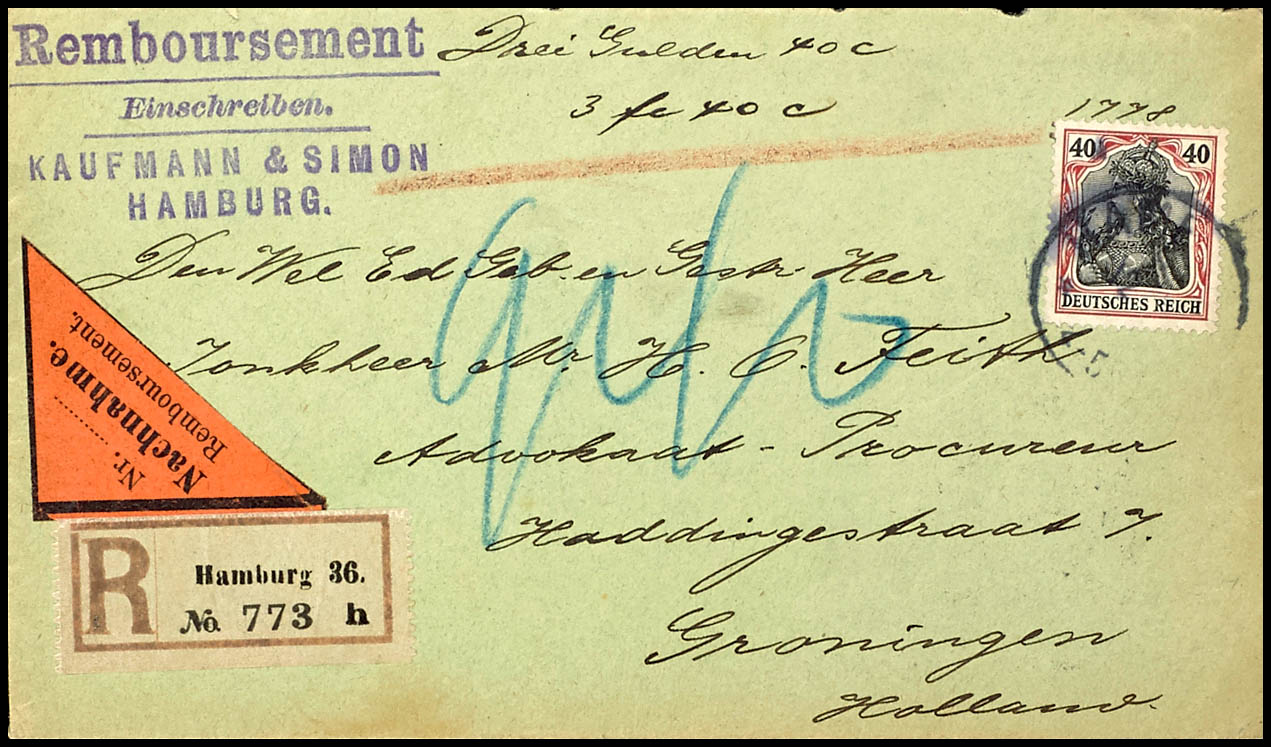 Remboursement
Drei Gulden 40 c
Einschreiben.
3 fl 40 c
1778
KAUFMANN & SIMON
HAMBURG.
40 40
DEUTSCHES REICH
Den Wel Ed Geb. en Gestr. Heer
Jonkheer Mr. H. O. Feith
Advokaat-Procureur
Haddingestraat 7.
Groningen
Holland.
Nr.
Nachnahme.
Remboursement.
R
Hamburg 36.
No. 773 h